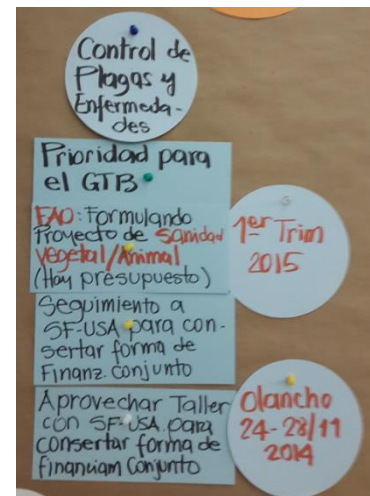 Control de
Plagas y
Enfermeda-
des
Prioridad para
el GTB
FAO: Formulando
Proyecto de Sanidad
Vegetal/Animal
(Hay presupuesto)
1er Trim
2015
Seguimiento a
SF-USA para con-
sertar forma de
Finanz. Conjunto
Aprovechar Taller
con SF-USA para
consertar forma de
financiam Conjunto
Olancho
24-28/11
2014